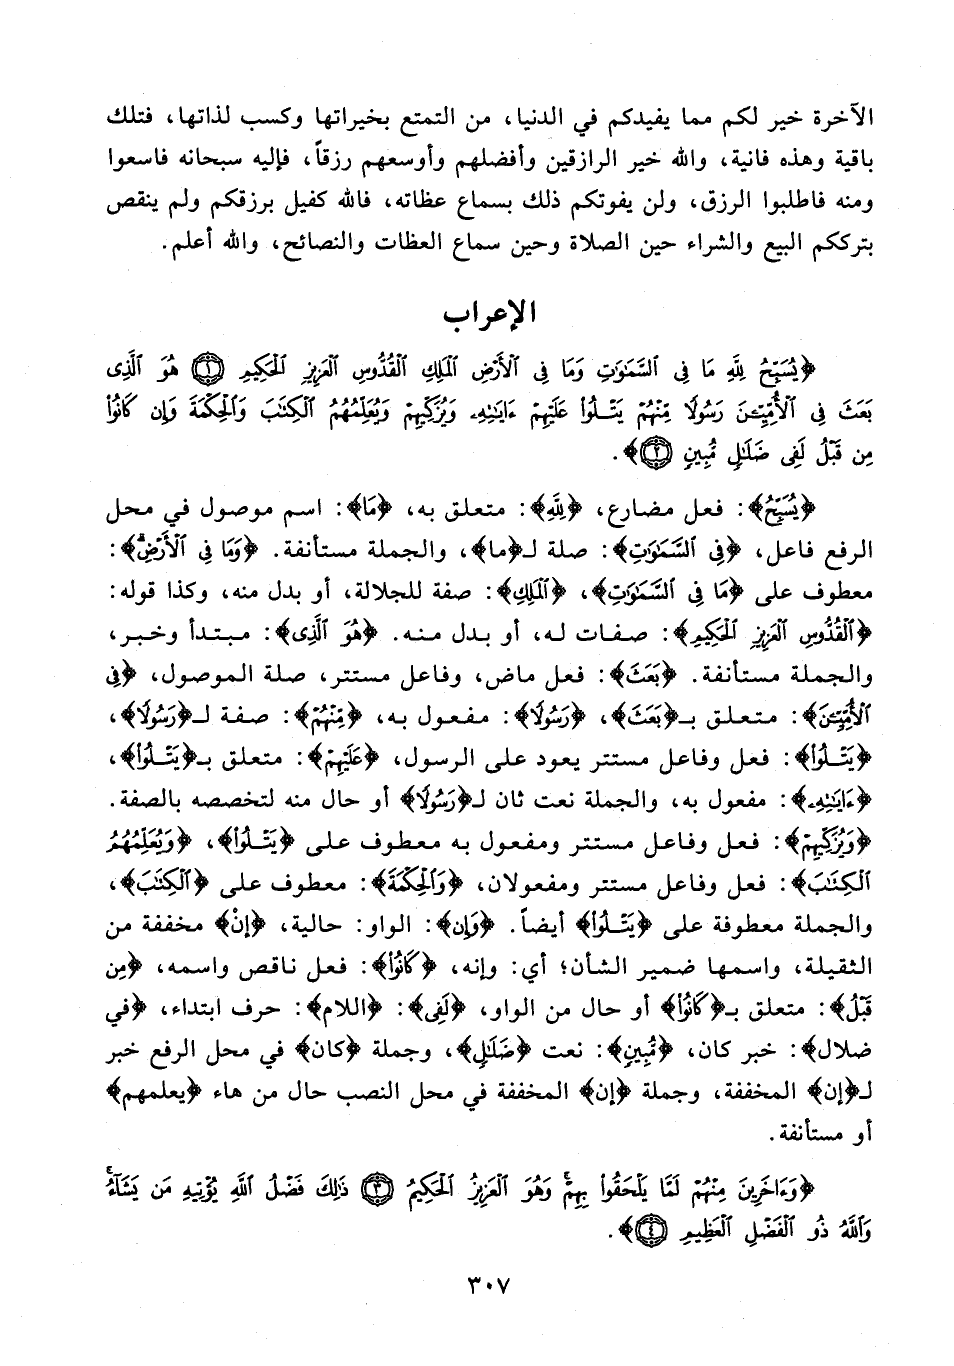 الآخرة خير لكم مما يفيدكم في الدنيا، من التمتع بخيراتها وكسب لذاتها، فتلك
باقية وهذه فانية، والله خير الرازقين وأفضلهم وأوسعهم رزقاً، فإليه سبحانه فاسعوا
ومنه فاطلبوا الرزق، ولن يفوتكم ذلك بسماع عظاته، فالله كفيل برزقكم ولم ينقص
بترككم البيع والشراء حين الصلاة وحين سماع العظات والنصائح، والله أعلم.
الإعراب
﴿يُسَبِّحُ لِلَّهِ مَا فِى ٱلسَّمَٰوَٰتِ وَمَا فِى ٱلْأَرْضِ ٱلْمَلِكِ ٱلْقُدُّوسِ ٱلْعَزِيزِ ٱلْحَكِيمِ ۝١ هُوَ ٱلَّذِى
بَعَثَ فِى ٱلْأُمِّيِّـۧنَ رَسُولًا مِّنْهُمْ يَتْلُوا۟ عَلَيْهِمْ ءَايَٰتِهِۦ وَيُزَكِّيهِمْ وَيُعَلِّمُهُمُ ٱلْكِتَٰبَ وَٱلْحِكْمَةَ وَإِن كَانُوا۟
مِن قَبْلُ لَفِى ضَلَٰلٍ مُّبِينٍ ۝٢﴾.
﴿يُسَبِّحُ﴾: فعل مضارع، ﴿لِلَّهِ﴾: متعلق به، ﴿مَا﴾: اسم موصول في محل
الرفع فاعل، ﴿فِى ٱلسَّمَٰوَٰتِ﴾: صلة لـ﴿ما﴾، والجملة مستأنفة. ﴿وَمَا فِى ٱلْأَرْضِ﴾:
معطوف على ﴿مَا فِى ٱلسَّمَٰوَٰتِ﴾، ﴿ٱلْمَلِكِ﴾: صفة للجلالة، أو بدل منه، وكذا قوله:
﴿ٱلْقُدُّوسِ ٱلْعَزِيزِ ٱلْحَكِيمِ﴾: صفات له، أو بدل منه. ﴿هُوَ ٱلَّذِى﴾: مبتدأ وخبر،
والجملة مستأنفة. ﴿بَعَثَ﴾: فعل ماض، وفاعل مستتر، صلة الموصول، ﴿فِى
ٱلْأُمِّيِّـۧنَ﴾: متعلق بـ﴿بَعَثَ﴾، ﴿رَسُولًا﴾: مفعول به، ﴿مِّنْهُمْ﴾: صفة لـ﴿رَسُولًا﴾،
﴿يَتْلُوا۟﴾: فعل وفاعل مستتر يعود على الرسول، ﴿عَلَيْهِمْ﴾: متعلق بـ﴿يَتْلُوا۟﴾،
﴿ءَايَٰتِهِۦ﴾: مفعول به، والجملة نعت ثان لـ﴿رَسُولًا﴾ أو حال منه لتخصصه بالصفة.
﴿وَيُزَكِّيهِمْ﴾: فعل وفاعل مستتر ومفعول به معطوف على ﴿يَتْلُوا۟﴾، ﴿وَيُعَلِّمُهُمُ
ٱلْكِتَٰبَ﴾: فعل وفاعل مستتر ومفعولان، ﴿وَٱلْحِكْمَةَ﴾: معطوف على ﴿ٱلْكِتَٰبَ﴾،
والجملة معطوفة على ﴿يَتْلُوا۟﴾ أيضاً. ﴿وَإِن﴾: الواو: حالية، ﴿إنْ﴾ مخففة من
الثقيلة، واسمها ضمير الشأن؛ أي: وإنه، ﴿كَانُوا۟﴾: فعل ناقص واسمه، ﴿مِن
قَبْلُ﴾: متعلق بـ﴿كَانُوا۟﴾ أو حال من الواو، ﴿لَفِى﴾: ﴿اللام﴾: حرف ابتداء، ﴿في
ضلال﴾: خبر كان، ﴿مُّبِينٍ﴾: نعت ﴿ضَلَٰلٍ﴾، وجملة ﴿كان﴾ في محل الرفع خبر
لـ﴿إن﴾ المخففة، وجملة ﴿إن﴾ المخففة في محل النصب حال من هاء ﴿يعلمهم﴾
أو مستأنفة.
﴿وَءَاخَرِينَ مِنْهُمْ لَمَّا يَلْحَقُوا۟ بِهِمْ ۚ وَهُوَ ٱلْعَزِيزُ ٱلْحَكِيمُ ۝٣ ذَٰلِكَ فَضْلُ ٱللَّهِ يُؤْتِيهِ مَن يَشَآءُ ۚ
وَٱللَّهُ ذُو ٱلْفَضْلِ ٱلْعَظِيمِ ۝٤﴾.
٣٠٧